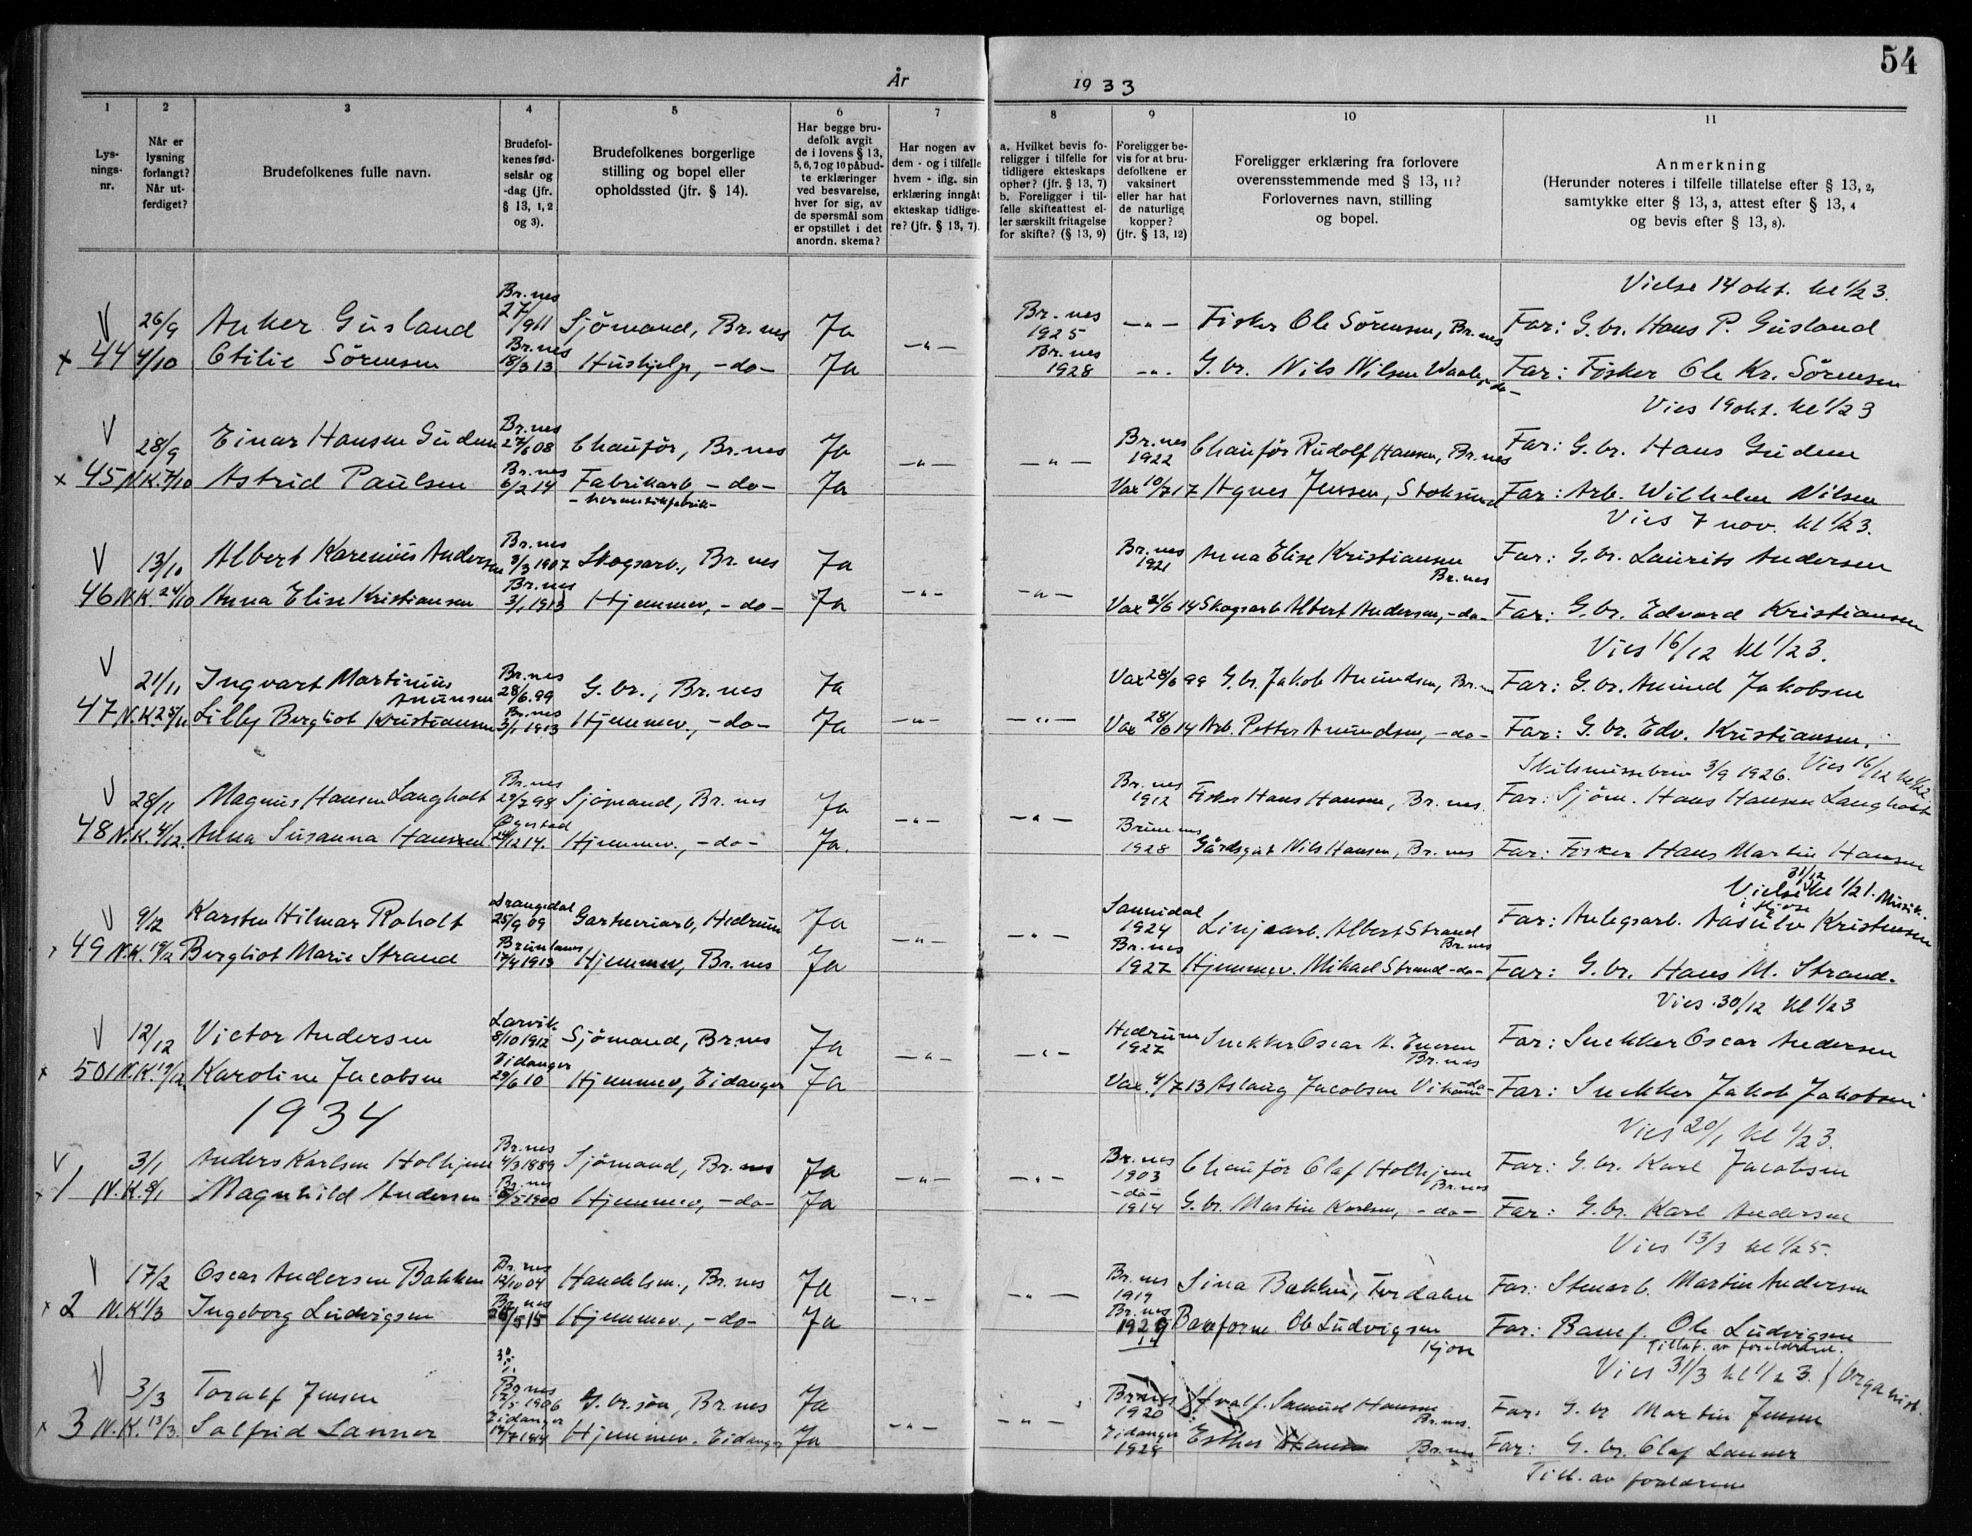 54
År 1933
1 2 3 4 5 6 7 8 9 10 11
Lys-
nings-
nr.
Når er
lysning
forlangt?
Når ut-
ferdiget?
Brudefolkenes fulle navn.
Brudefol-
kenes fød-
selsår og
-dag (jfr.
§ 13, 1, 2
og 3).
Brudefolkenes borgerlige
stilling og bopel eller
opholdssted (jfr. § 14).
Har begge bru-
defolk avgit
de i lovens § 13,
5, 6, 7 og 10 påbud-
te erklæringer
ved besvarelse,
hver for sig, av
de spørsmål som
er opstillet i det
anordn. skema?
Har nogen av
dem - og i tilfelle
hvem - iflg. sin
erklæring inngåt
ekteskap tidlige-
re? (jfr. § 13, 7).
a. Hvilket bevis fo-
religger i tilfelle for
tidligere ekteskaps
ophør? (jfr. § 13, 7)
b. Foreligger i til-
felle skifteattest el-
ler særskilt fritagelse
for skifte? (§ 13, 9)
Foreligger be-
vis for at bru-
defolkene er
vaksinert
eller har hat
de naturlige
kopper?
(jfr. § 13, 12)
Foreligger erklæring fra forlovere
overensstemmende med § 13, 11?
Forlovernes navn, stilling
og bopel.
Anmerkning
(Herunder noteres i tilfelle tillatelse efter § 13, 2,
samtykke efter § 13, 3, attest efter § 13, 4
og bevis efter § 13, 8).
Vielse 14 okt. kl 1/2 3.
V 26/9 Anker Gusland Br.nes 27/1 911 Sjömand, Br.nes Ja Br.nes 1925 -"- Fisker Ole Sörensen, Br.nes Far: G.br. Hans P. Gusland
x 44 4/10 Otilie Sörensen Br.nes 18/3 13 Hushjelp, -do- Ja -"- Br.nes 1928 -"- G.br. Nils Nilsen Waale, -do- Far: Fisker Ole Kr. Sörensen
Vies 19 okt. kl 1/2 3
V 28/9 Einar Hansen Gudem Br.nes 27/6 08 Chauför, Br.nes Ja Br.nes 1922 Chauför Rudolf Hansen, Br.nes Far: G.br. Hans Gudem
x 45 N.K. 7/10 Astrid Paulsen Br.nes 6/2 14 Fabrikarb -do- Ja -"- -"- Vax 10/7 17 Agnes Jensen, Stoksund Far: Arb. Wilhelm Nilsen
- hermetikfabrik-
Vies 7 nov. kl 1/2 3.
V 13/10 Albert Karenius Andersen Br.nes 8/3 1907 Skogsarb., Br.nes Ja Br.nes 1921 Anna Elise Kristiansen Br.nes Far: G.br. Laurits Andersen
46 N.K. 24/10 Anna Elise Kristiansen Br.nes 3/1 1913 Hjemmev, -do- Ja -"- -"- Vax 21/6 14 Skogsarb Albert Andersen, -do- Far: G.br. Edvard Kristiansen
Vies 16/12 kl 1/2 3.
V 21/11 Ingvart Martinius Anunsen Br.nes 28/6.99 G.br., Br.nes Ja Vax 28/6 99 G.br. Jakob Amundsen, Br.nes Far: G.br. Amund Jakobsen
47 N.K. 25/11 Lilly Bergliot Kristiansen Br.nes 3/1 1913 Hjemmev., -do- Ja -"- -"- Vax 28/6 14 Arb. Petter Amundsen, -do- Far: G.br. Edv. Kristiansen.
Skilsmissebrev 3/9 1926. Vies 16/12 kl 1/2
V 28/11 Magnus Hansen Langholt Br.nes 29/7 98 Sjömand, Br.nes Ja Br.nes 1912 Fisker Hans Hansen, Br.nes. Far: Sjöm. Hans Hansen Langholt
48 N.K. 4/12. Anna Susanna Hansen 24/12 14. Hjemmev., -do- Ja. -"- -"- 1928 Gårdsgut Nils Hansen, Br.nes Far: Fisker Hans Martin Hansen
Vielse 31/12 kl 1/2 1. Musik.
i Kjose
V 9/12 Karsten Hilmar Roholt Drangedal 25/9 09 Gartneriarb, Hedrum Ja Sannidal 1924 Linjearb. Albert Strand Br.nes Far: Anlegsarb. Aasulv Kristensen
x 49 N.K. 19/12 Bergliot Marie Strand Brunlanes 17/4 1913 Hjemmev, Br.nes Ja -"- -"- Br.nes 1927 Hjemmev. Mikael Strand -do- Far: G.br. Hans M. Strand.
Vies 30/12 kl 1/2 3
V 12/12 Victor Andersen Larvik 8/10 1912 Sjömand, Br.nes Ja Hedrum 1927 Snekker Oscar Br.nes Far: Snekker Oscar Andersen
x 50 N.K. 19/12 Karoline Jacobsen Eidanger 29/6 10 Hjemmev, Eidanger Ja -"- -"- Vax. 4/7 13 Aslaug Jacobsen -do- Far: Snekker Jakob Jakobsen
1934
Vies 20/1 kl 1/2 3.
V 3/1 Anders Karlsen Holhjem Br.nes 4/3 1889 Sjömand, Br.nes Ja Br.nes 1903 Chauför Olaf Holhjem Br.nes Far: G.br. Karl Jacobsen
x 1 N.K. 8/1 Magnhild Andersen Br.nes 8/5 1900 Hjemmev, -do- Ja -"- -"- -do- 1914 G.br. Martin Karlsen, -do- Far: G.br. Karl Andersen
Vies 13/3 kl 1/2 5.
V 17/2 Oscar Andersen Bakken Br.nes 12/10 04 Handelsm., Br.nes Ja Br.nes 1919 Sina Bakken, Tvedalen Far: Stenarb. Martin Andersen
x 2 N.K. 1/3 Ingeborg Ludvigsen Br.nes 26/5 15 Hjemmev., -do- Ja -"- -"- Br.nes 1929 Baneform. Ole Ludvigsen Kjose Far: Banef. Ole Ludvigsen
Tillat. av foreldrene.
Vies 31/3 kl 1/2 3. / Organist.
V 3/3 Toralf Jensen Br.nes 17/5 1906 G.br.søn, Br.nes Ja Br.nes 1920 Hvalf. Samuel Hansen Br.nes. Far: G.br Martin Jensen
x 3 N.K. 13/3. Salfrid Lanner Eidanger Hjemmev. Eidanger Ja -"- -"- Eidanger 1929 Esther Br.nes Far: G.br. Olaf Lanner
Till. av foreldrene